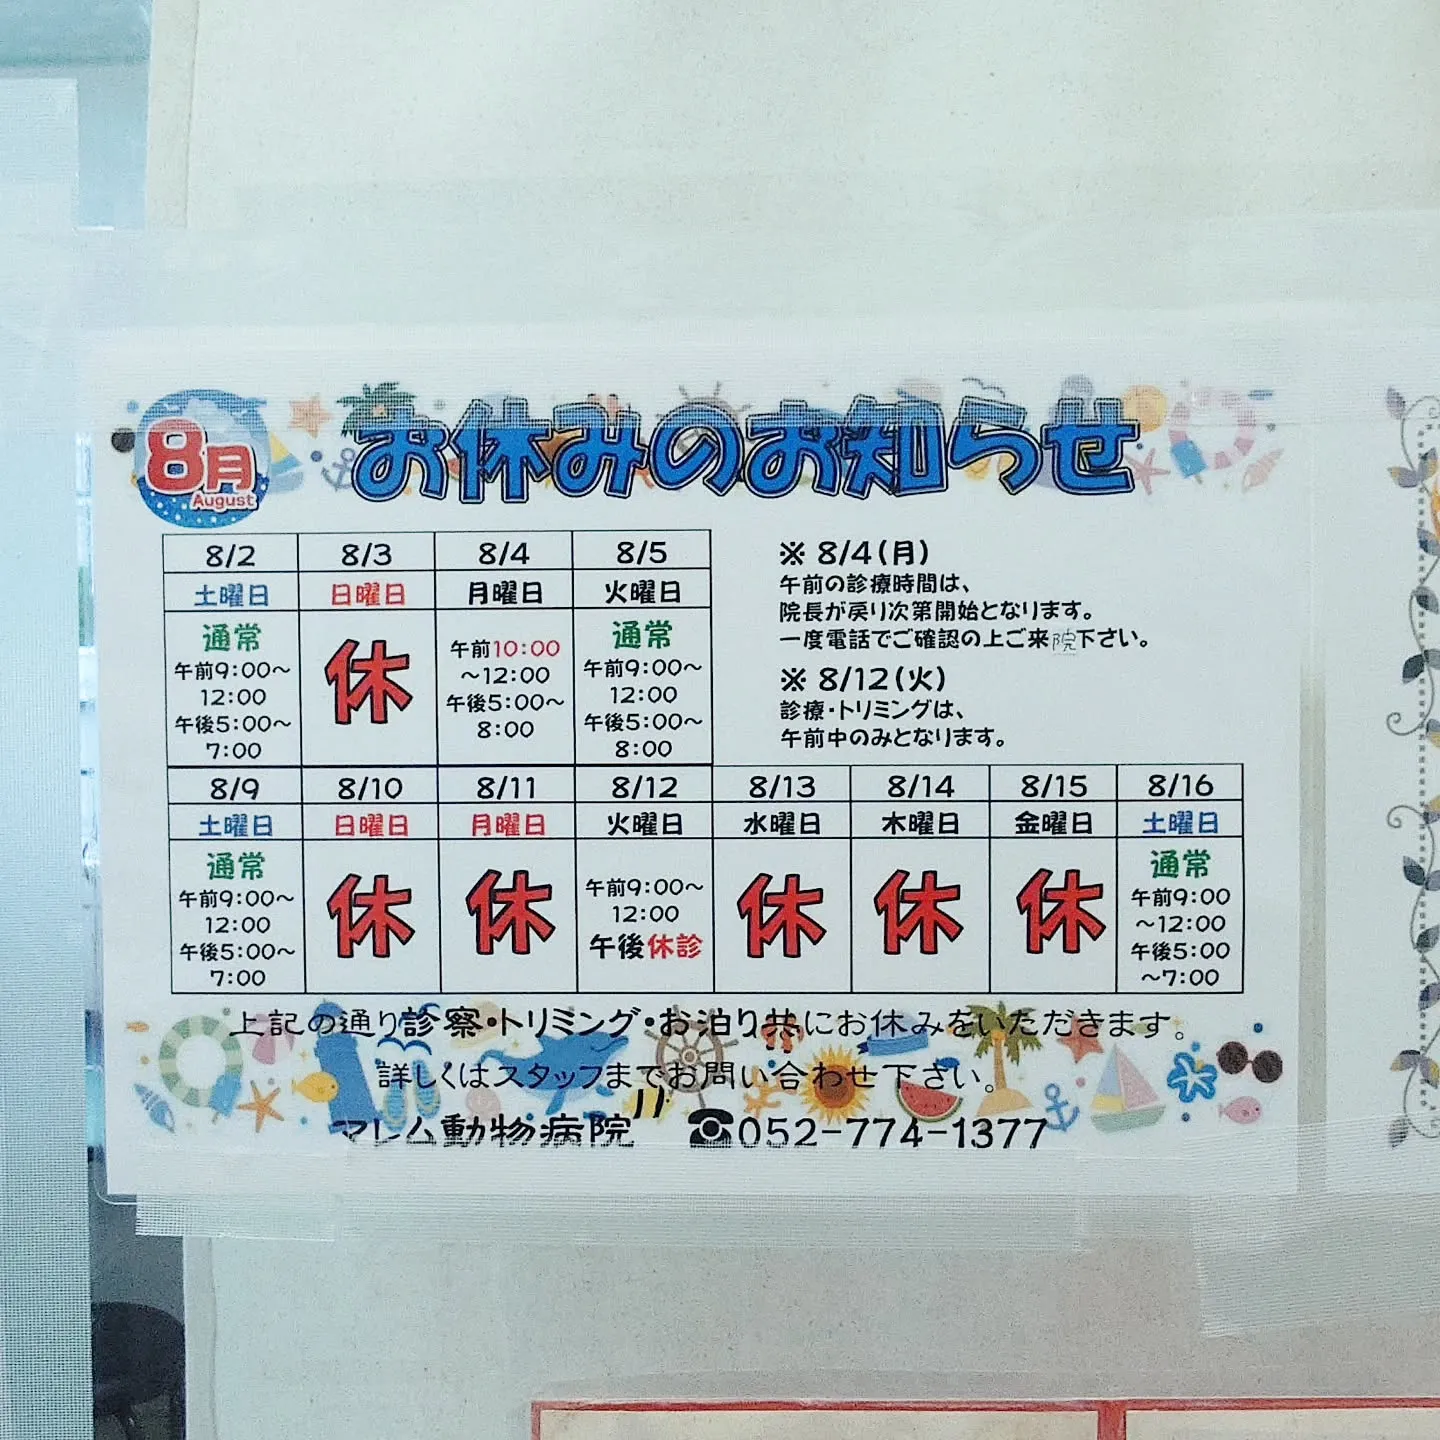 8月
August
お休みのお知らせ
8/2 8/3 8/4 8/5
土曜日 日曜日 月曜日 火曜日
通常
午前9:00～
12:00
午後5:00～
7:00
休
午前10:00
～12:00
午後5:00～
8:00
通常
午前9:00～
12:00
午後5:00～
8:00
※ 8/4(月)
午前の診療時間は、
院長が戻り次第開始となります。
一度電話でご確認の上ご来院下さい。
※ 8/12(火)
診療・トリミングは、
午前中のみとなります。
8/9 8/10 8/11 8/12 8/13 8/14 8/15 8/16
土曜日 日曜日 月曜日 火曜日 水曜日 木曜日 金曜日 土曜日
通常
午前9:00～
12:00
午後5:00～
7:00
休
休
午前9:00～
12:00
午後休診
休
休
休
通常
午前9:00
～12:00
午後5:00
～7:00
上記の通り診察・トリミング・お泊り共にお休みをいただきます。
詳しくはスタッフまでお問い合わせ下さい。
マレム動物病院 ☎052-774-1377